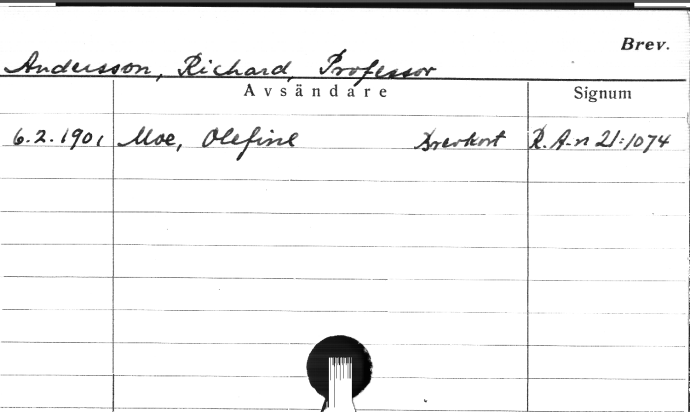 Brev.
Andersson, Richard, Professor
Avsändare Signum
6.2.1901 Moe, Olefine Brevkort R.A-n 21:1074